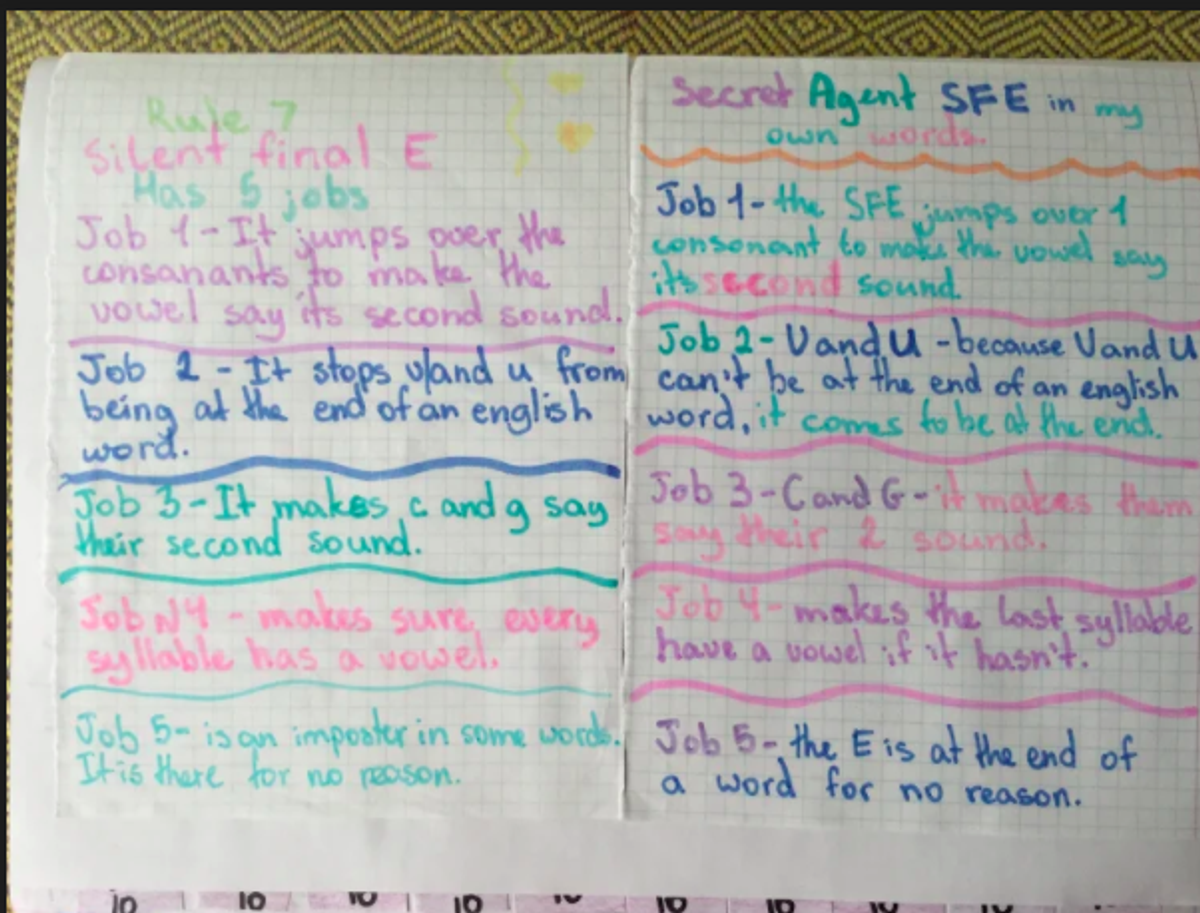 Rule 7
Silent final E
Has 5 jobs
Job 1 - It jumps over the
consanants to make the
vowel say its second sound.
Job 2 - It stops v/and u from
being at the end of an english
word.
Job 3 - It makes c and g say
their second sound.
Job N4 - makes sure every
syllable has a vowel.
Job 5 - is an imposter in some words.
It is there for no reason.
Secret Agent SFE in my
own words.
Job 1 - the SFE jumps over 1
consonant to make the vowel say
its second sound.
Job 2 - V and U - because V and U
can't be at the end of an english
word, it comes to be at the end.
Job 3 - C and G - it makes them
say their 2 sound.
Job 4 - makes the last syllable
have a vowel if it hasn't.
Job 5 - the E is at the end of
a word for no reason.
10 10 10 10 10 10 10 10 10